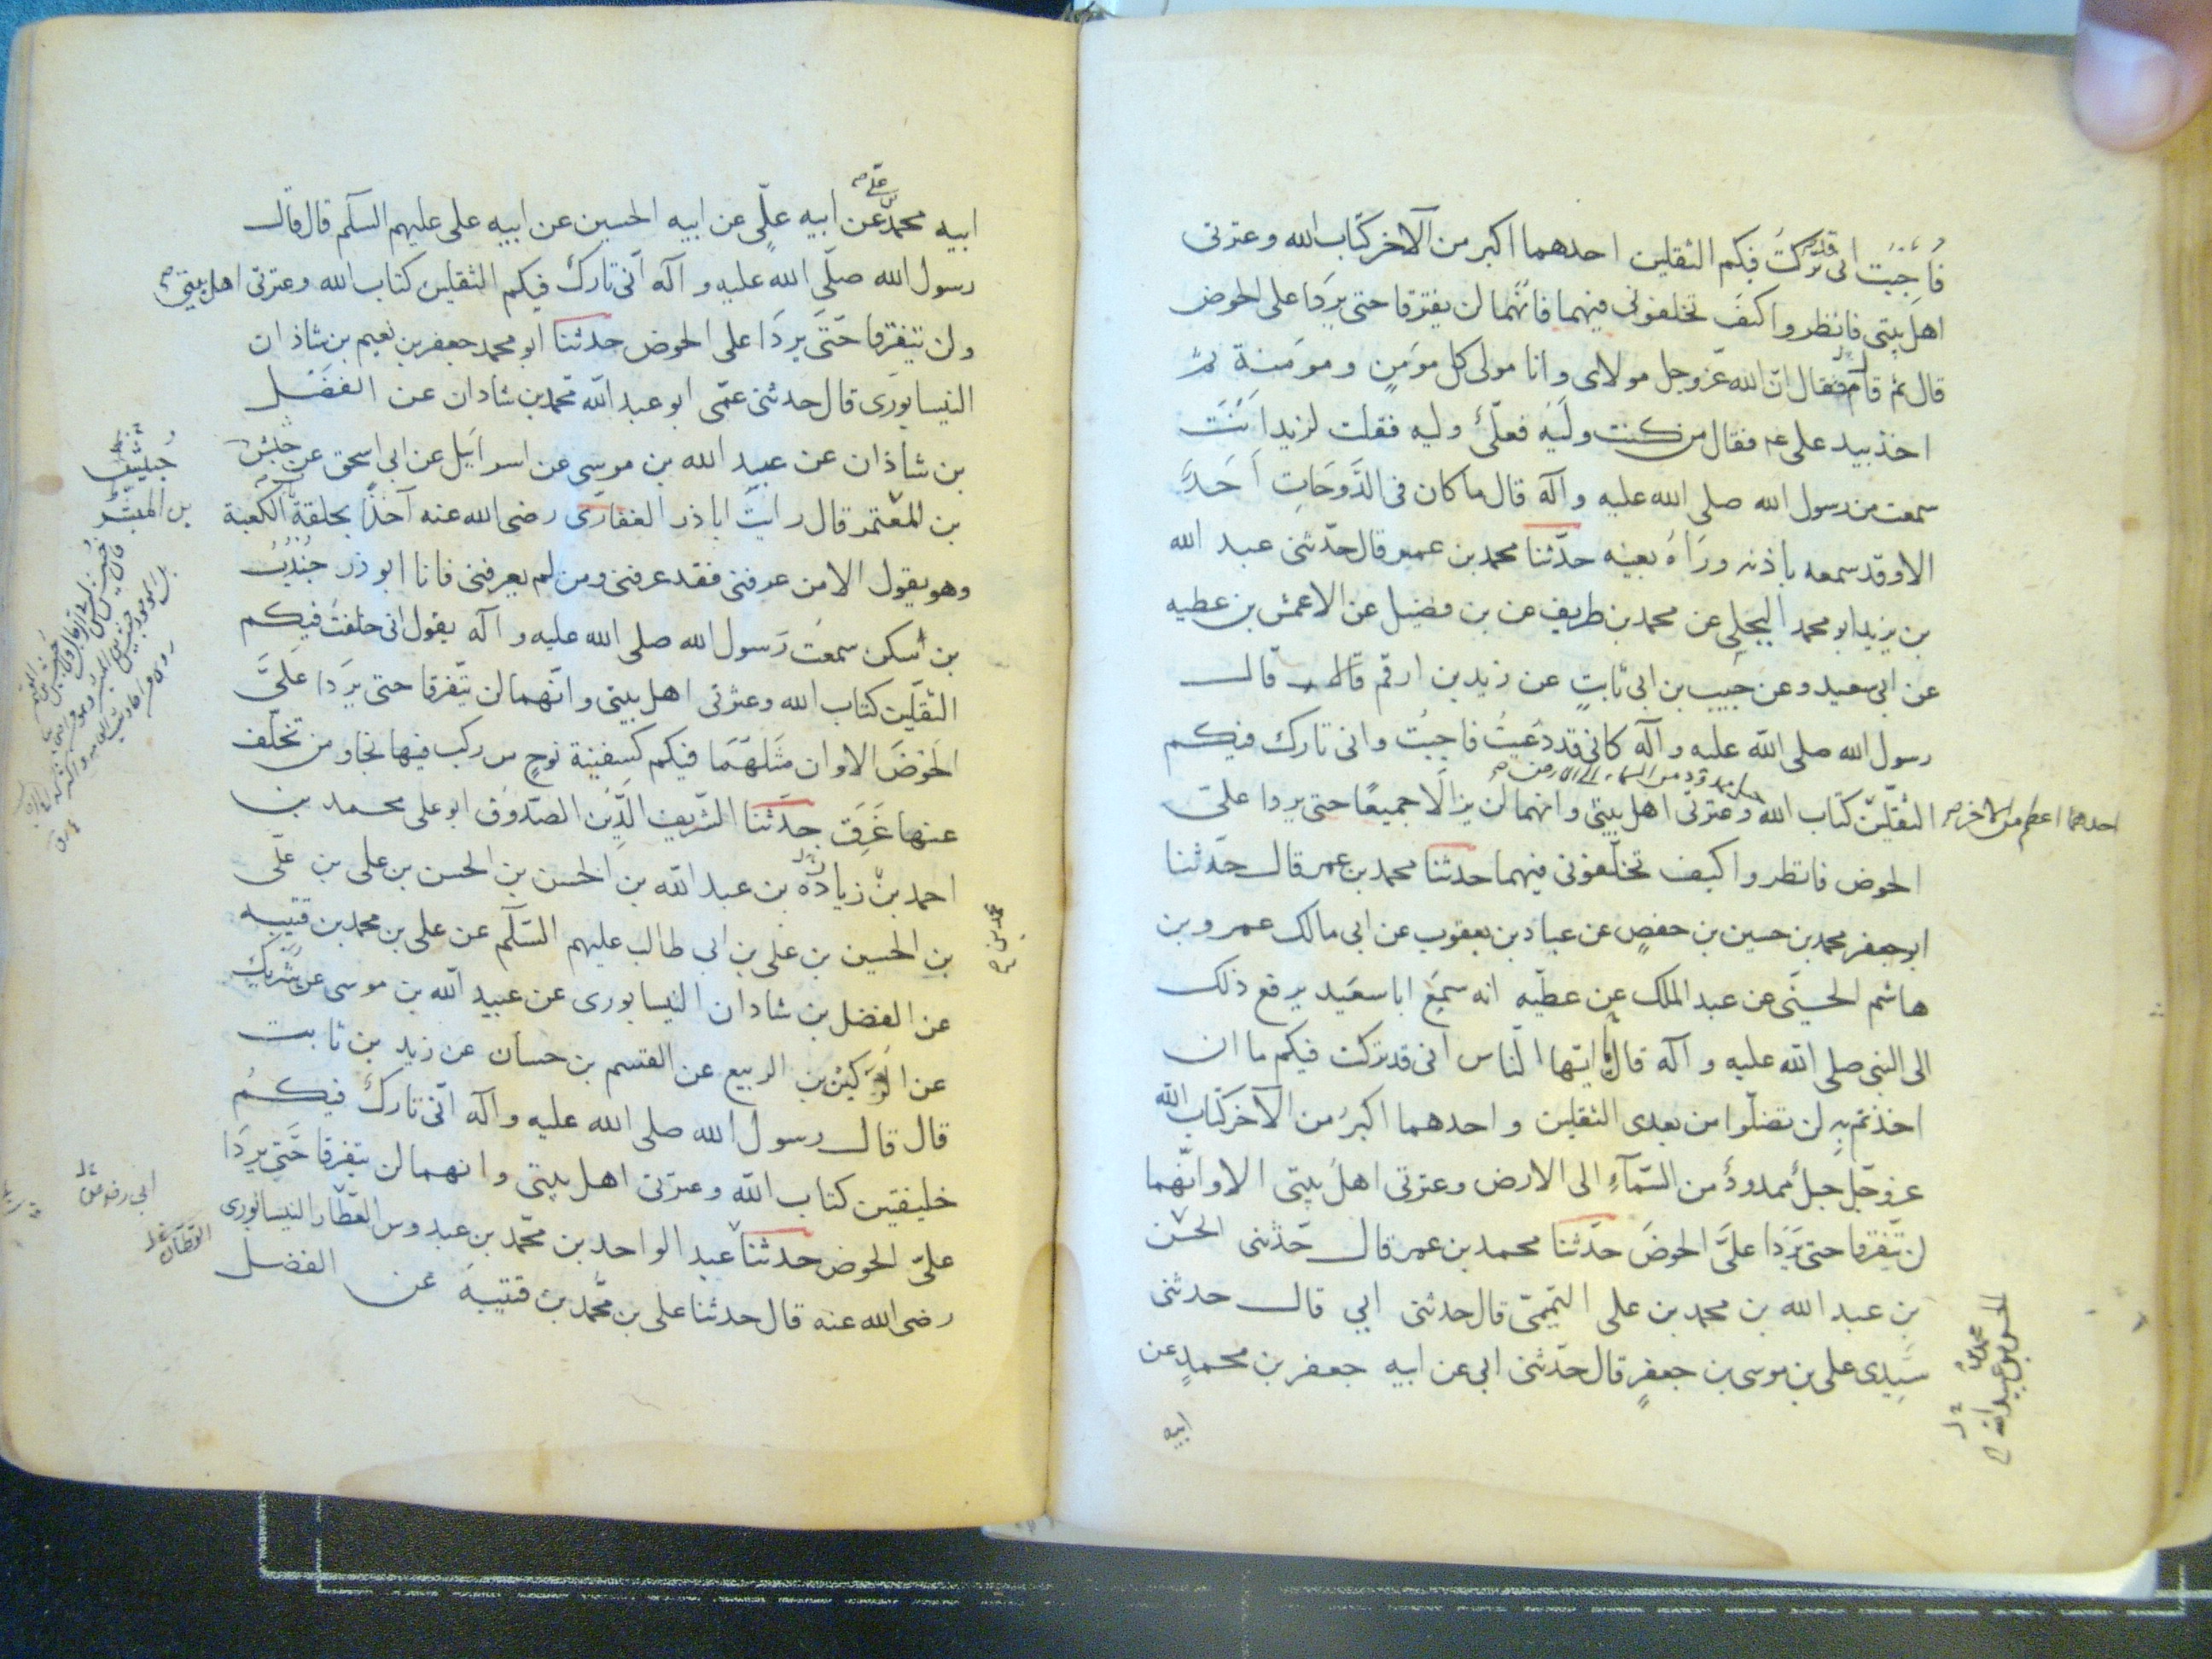 فأجبت انى قد تركت فيكم الثقلين احدهما اكبر من الآخر كتاب الله وعترتى
اهل بيتى فانظروا كيف تخلفونى فيهما فانهما لن يفترقا حتى يردا على الحوض
قال ثم قال ان الله عز وجل مولاى وانا مولى كل مؤمن ومؤمنة ثم
اخذ بيد على عم فقال من كنت وليه فعلى وليه فقلت لزيد انت
سمعت من رسول الله صلى الله عليه وآله قال ما كان فى الدوحات احد
الا وقد سمعه باذنه ورآه بعينه حدثنا محمد بن عمر قال حدثنى عبد الله
بن يزيد ابو محمد البجلى عن محمد بن طريف عن بن فضيل عن الاعمش بن عطيه
عن ابى سعيد وعن حبيب بن ابى ثابت عن زيد بن ارقم قال قال
رسول الله صلى الله عليه وآله كانى قد دعيت فاجبت وانى تارك فيكم
حبل ممدود من السماء الى الارض
الثقلين كتاب الله وعترتى اهل بيتى وانهما لن يزالا جميعا حتى يردا على
احدهما اعظم من الآخر
الحوض فانظروا كيف تخلفونى فيهما حدثنا محمد بن عمر قال حدثنا
ابو جعفر محمد بن حسين بن حفص عن عباد بن يعقوب عن ابى مالك عمرو بن
هاشم الحسينى عن عبد الملك عن عطيه انه سمع ابا سعيد يرفع ذلك
الى النبى صلى الله عليه وآله قال ايها الناس انى قد تركت فيكم ما ان
اخذتم به لن تضلوا من بعدى الثقلين واحدهما اكبر من الآخر كتاب الله
عز وجل حبل ممدود من السماء الى الارض وعترتى اهل بيتى الا وانهما
لن يتفرقا حتى يردا على الحوض حدثنا محمد بن عمر قال حدثنى الحسن
بن عبد الله بن محمد بن على التميمى قال حدثنى ابي قال حدثنى
سيدى على بن موسى بن جعفر قال حدثنى ابى عن ابيه جعفر بن محمد عن
ابيه
الحسن بن عبيد الله
محمد بن
ابيه محمد عن ابيه على عن ابيه الحسين عن ابيه على عليهم السلم قال قال
رسول الله صلى الله عليه وآله انى تارك فيكم الثقلين كتاب الله وعترتى اهل بيتى
ولن يتفرقا حتى يردا على الحوض حدثنا ابو محمد جعفر بن نعيم بن شاذان
النيسابورى قال حدثنى عمى ابو عبد الله محمد بن شاذان عن الفضل
بن شاذان عن عبيد الله بن موسى عن اسرائيل عن ابى اسحق عن حنش
بن المعتمر قال رايت اباذر الغفارى رضى الله عنه آخذا بحلقة باب الكعبة
وهو يقول الا من عرفنى فقد عرفنى ومن لم يعرفنى فانا ابو ذر جندب
بن اسكن سمعت رسول الله صلى الله عليه وآله يقول انى خلفت فيكم
الثقلين كتاب الله وعترتى اهل بيتى وانهما لن يتفرقا حتى يردا على
الحوض الا وان مثلهما فيكم كسفينة نوح من ركب فيها نجا ومن تخلف
عنها غرق حدثنا الشريف الدين الصدوق ابو على محمد بن
احمد بن زيادة بن عبد الله بن الحسن بن الحسن بن على بن على
بن الحسين بن على بن ابى طالب عليهم السلم عن على بن محمد بن قتيبه
عن الفضل بن شاذان النيسابورى عن عبيد الله بن موسى عن شريك
عن الركين بن الربيع عن القسم بن حسان عن زيد بن ثابت
قال قال رسول الله صلى الله عليه وآله انى تارك فيكم
خليفتين كتاب الله وعترتى اهل بيتى وانهما لن يتفرقا حتى يردا
على الحوض حدثنا عبد الواحد بن محمد بن عبدوس العطار النيسابورى
رضى الله عنه قال حدثنا على بن محمد بن قتيبة عن الفضل
محمد بن
القطان